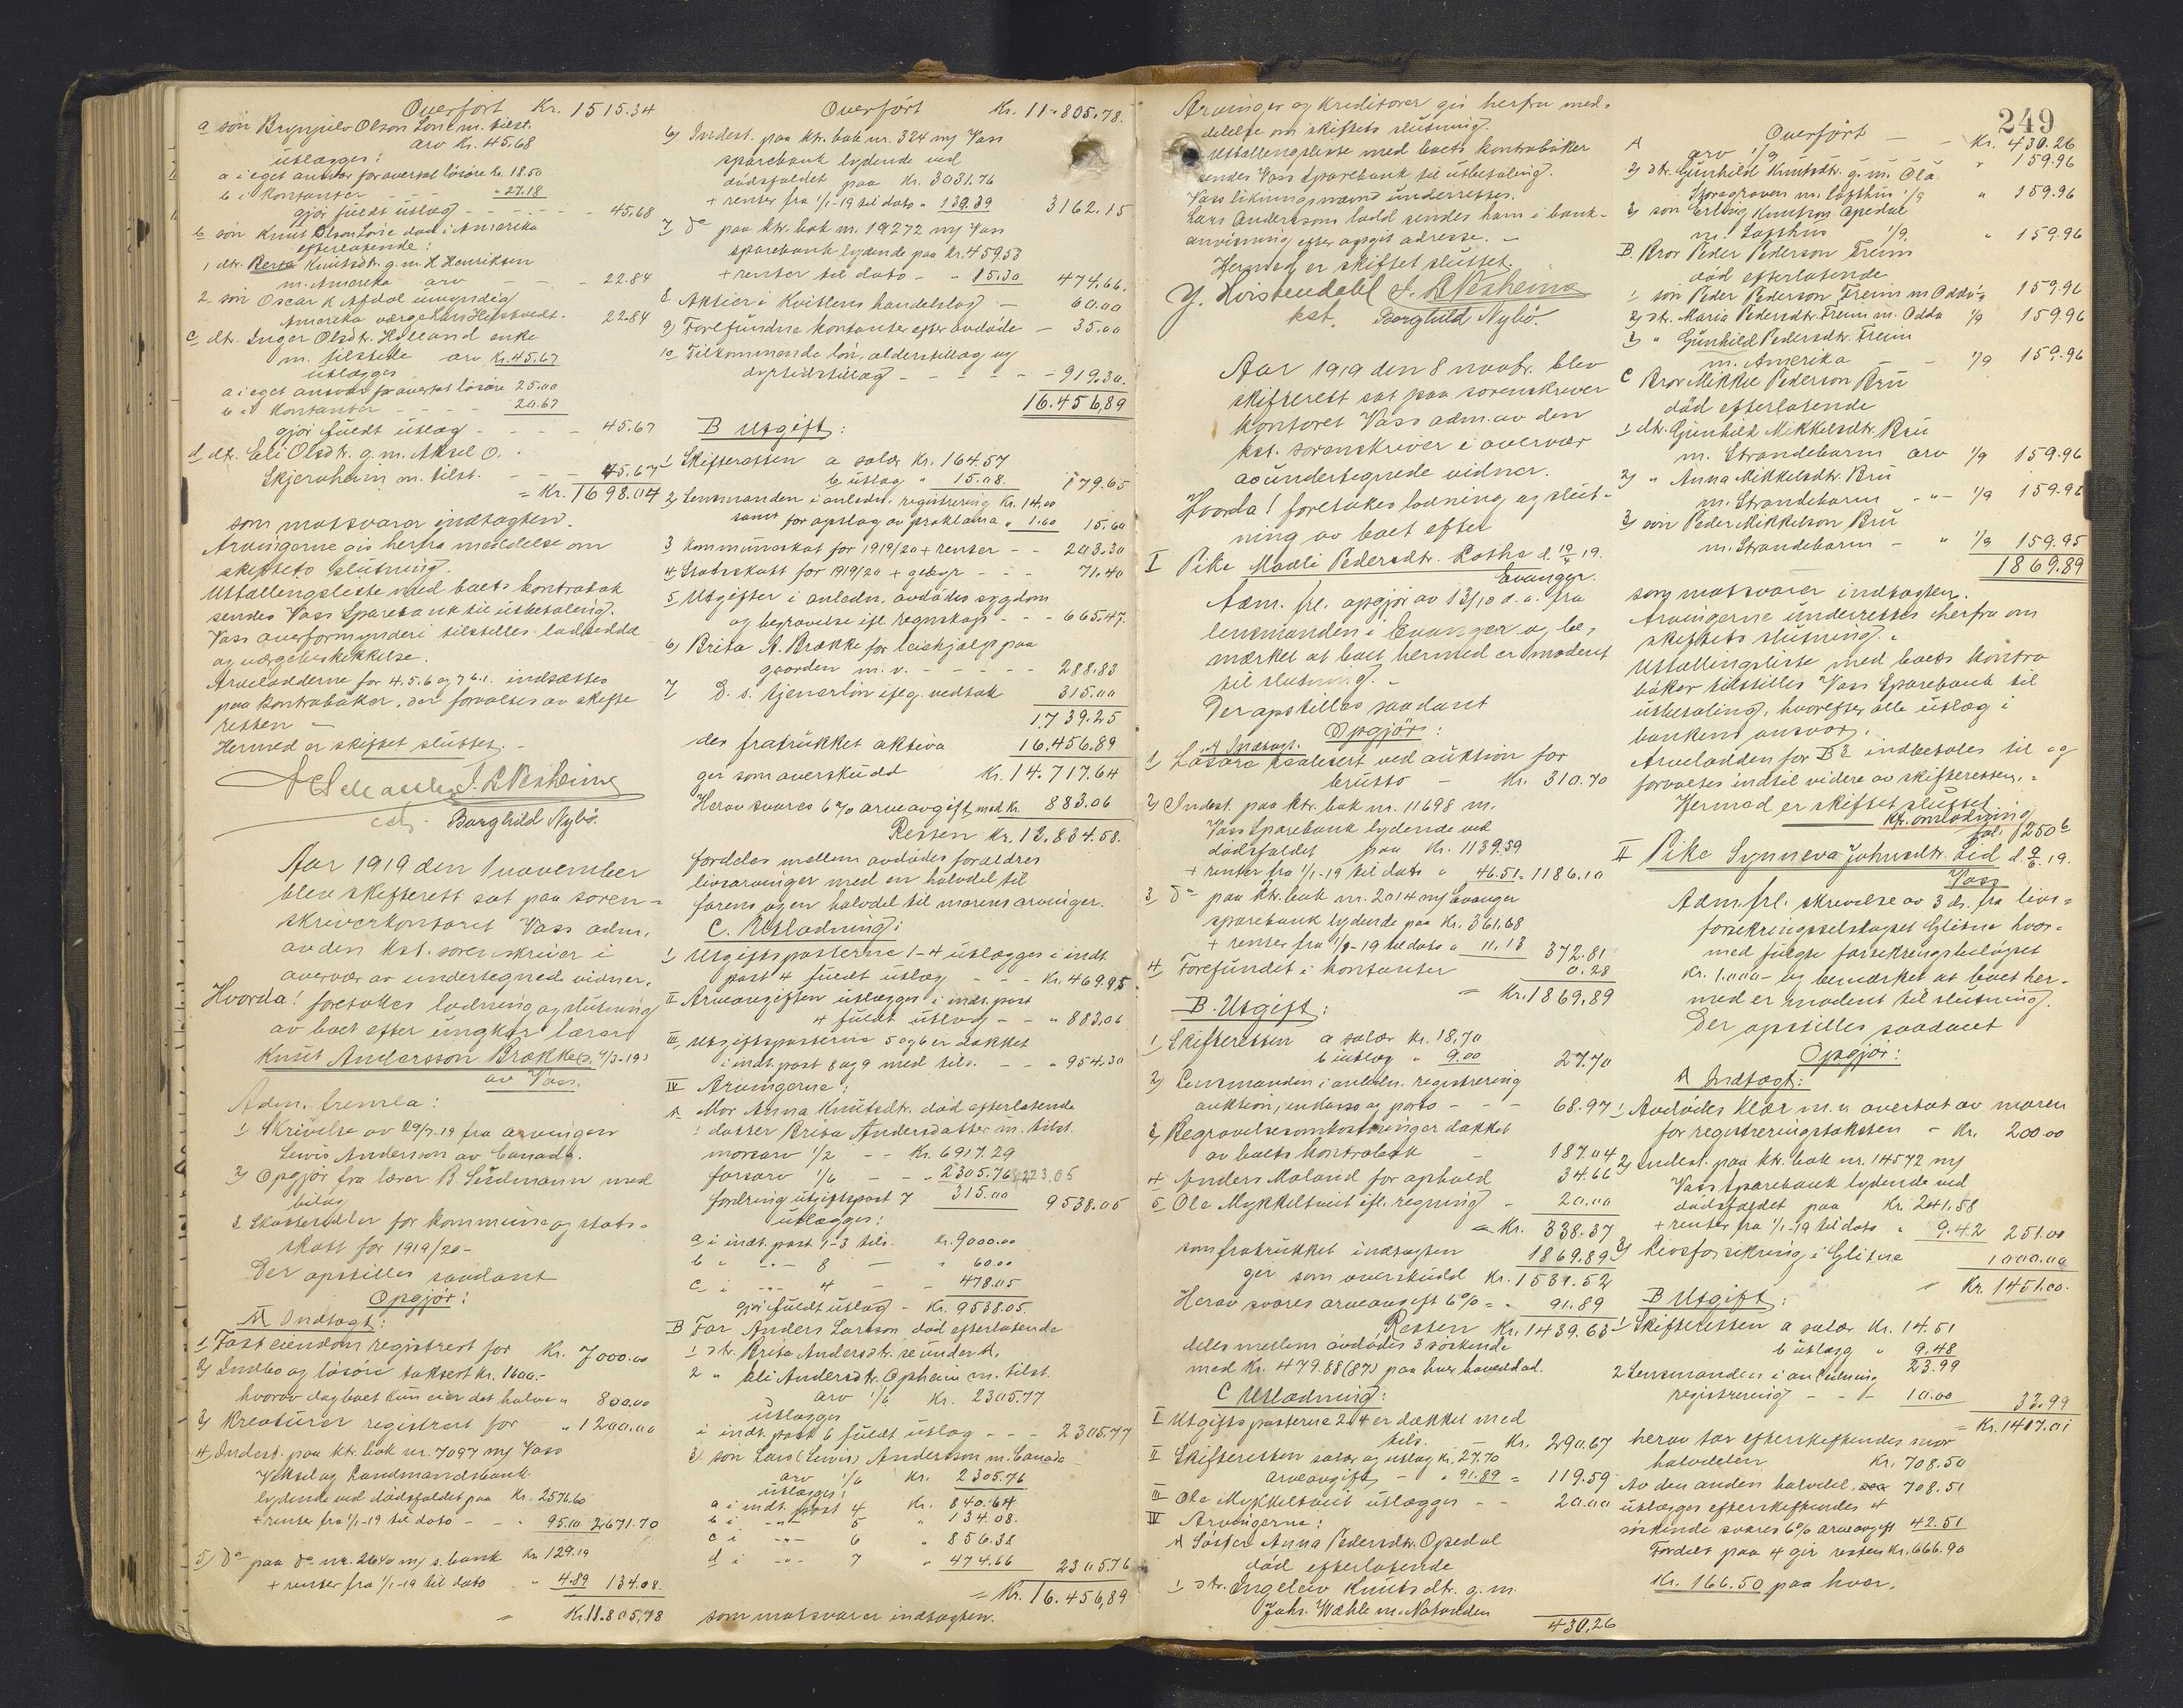 Overført Kr. 1515.34
a søn Brynjulv Olson Lone m. tilst.
arv Kr. 45.68
utlægges:
a i eget ansvar for overtat løsøre Kr. 18.50
b i Kontanter - - " 27.18
gjør fuldt utlæg - - - - - 45.68
b søn Knut Olson Lone død i Amerika
efterlatende:
1 dtr. Berta Knutsdtr. g. m. H Henriksen
m. Amerika arv - - - 22.84
2 søn Oscar K Afdal umyndig
Amerika værge Lars 22.84
c dtr. Inger Olsdtr. Helland enke
m. tilstede arv Kr. 45.67
utlægges
a i eget ansvar for overtat løsøre 25.00
b i Kontanter - - - 20.67
gjør fuldt utlæg - - - 45.67
d dtr. Eli Olsdtr. g. m. Aksel O.
Skjerveheim m. tilst. - - 45.67
= Kr. 1698.04
som motsvarer indtægten.
Arvingerne gis herfra meddelelse om
skiftets slutning.
Utfallengsleste med boets kontrabok
sendes Vass Sparebank til utbetaling.
Vass overformynderi tilstilles lodseddel
og værgebeskikkelse.
Arvelodderne for 4, 5, 6 og 7 b. 1. indsættes
paa kontrabøker, der forvaltes av skifte
retten -
Hermed er skiftet sluttet. -
Borghild Nybø.
Aar 1919 den 1 november
blev skifterett sat paa soren-
skriverkontoret Vass adm.
av den kst. sorenskriver i
overvær av undertegnede vidner.
Hvorda! foretokes lodning og slutning
av boet efter ungkar lærer
Knut Andersson Brække d. 4/3-19
av Vass.
Adm. fremla:
1 Skrivelse av 29/7-19 fra arvingen
Lewis Anderson av Canada.
2) Opgjør fra lærer B. Seidmann med
bilag
3 Skattesedler for kommune og stats-
skatt for 1919/20-
Der opstilles saadant
Opgjør:
A Indtægt:
1 Fast eiendom registrert for Kr. 7000.00
2) Indbo og løsøre taksert Kr. 1600.-
hvorav dødboet kun eier det halve " 800.00
3) Kreaturer registrert for " 1200.00
4) Indest. paa ktr. bok nr. 7097 m/ Vass
Veksel og Landmandsbank
lydende ved dødsfaldet paa Kr. 2576.60
+ renter fra 1/1-19 til dato - - " 95.10 2671.70
5) do paa do nr. 2640 m/ s. bank Kr. 129.19
+ renter fra 1/1-19 til dato " 4.89 134.08.
= Kr. 11.805,78
Overført Kr. 11.805.78.
6) Indest. paa ktr. bok nr. 324 m/ Vass
sparebank lydende ved
dødsfaldet paa Kr. 3031.76
+ renter fra 1/1-19 til dato " 130.39 3162.15
7 do paa ktr. bok nr. 19272 m/ Vass
sparebank lydende paa Kr. 459.53
+ renter til dato - " 15.30 474.66.
8 Aktier i Kvitlens handelslag - 60.00
9) Forefundne kontanter efter avdøde - 35.00
10 Tilkommende løn, alderstillæg og
dyrtidstillæg - - - - - 919.30.
16.456,89
B Utgift:
1 Skifteretten a salær Kr. 164.57
b utlæg " 15.08. 179.65
2) Lensmanden i anledn. registrering Kr. 14.00
samt for opslag av proklama " 1.60 15.60
3 Kommuneskat for 1919/20 + renter - - 203.30
4 Statsskatt for 1919/20 + gebyr - - - 71.40
5 Utgifter i anledn. avdødes sygdom
og begravelse ifl. regnskap - - - 665.47.
6) Brita A. Brække for leiehjælp paa
gaarden m. v. - - - - - 288.83
7 D. s. tjenerløn iflg. vedtak 315.00
1.739.25
der fratrukket aktiva 16.456.89
gir som overskudd Kr. 14.717.64
Herav svares 6 % arveavgift med Kr. 883.06
Resten Kr. 13.834.58.
fordeles mellem avdødes forældres
livsarvinger med en halvdel til
farens og en halvdel til morens arvinger.
C. Utlodning:
I Utgiftsposterne 1-4 utlægges i indt
post 4 fuldt utlæg - - - Kr. 469.95
II Arveavgiften utlægges i indt. post
4 fuldt utlæg - - " 883.06
III, utgiftsposterne 5 og 6 er dækket
i indt. post 8 og 9 med tils. - - " 954.30
IV Arvingerne:
A Mor Anna Knutsdtr. død efterlatende
1 datter Brita Andersdatter m. tilst.
morsarv 1/2 - - Kr. 6917.29
farsarv 1/6 - - " 2305.76 9223,05
fordring utgiftspost 7 315.00 9538.05
utlægges:
a i indt. post 1-3 tils. Kr. 9000.00
b " -"- 8 - " 60.00
c i -"- 4 - - 478.05
gjør fuldt utlæg - Kr. 9538.05.
B Far Anders Larsson død efterlatende
1 dtr. Brita Andersdtr. se under A.
2 " Eli Andersdtr. Opheim m. tilst.
arv 1/6 Kr. 2305.77
utlægges
i indt. post 6 fuldt utlæg - - - 2305.77
3) søn Lars (Lewis) Andersson m. Canada
arv 1/6 Kr. 2305.76
utlægges:
a i indt. post 4 Kr. 840.64
b i -"- 5 " 134.08.
c i -"- 6 " 856.38
d i -"- 7 " 474.66 2305.76
= Kr. 16.456,89
som motsvarer indtægten.
Arvinger og kreditorer gis herfra med-
delelse om skiftets slutning.
Utfallengsleste med boets kontrabøker
sendes Vass Sparebank til utbetaling.
Vass likningsnævnd underrettes.
Lars Anderssons lodd sendes ham i bank-
anvisning efter opgit adresse. -
Hermed er skiftet sluttet.
Y. Hvistendahl
kst. Borghild Nybø.
Aar 1919 den 8 novbr. blev
skifterett sat paa sorenskriver
kontoret Vass adm. av den
kst. sorenskriver i overvær
av undertegnede vidner.
Hvorda! foretokes lodning og slut-
ning av boet efter
I Pike Maali Pedersdtr. Rothe d. 19/4 19.
Evanger.
Adm. frl. opgjør av 13/10 d. a. fra
lensmanden i Evanger og be-
mærket at boet hermed er modent
til slutning. -
Der opstilles saadant
Opgjør:
A Indtægt.
1 Løsøre realisert ved auktion for
brutto - Kr. 310.70
2) Indest. paa ktr. bok nr. 11698 m.
Vass Sparebank lydende ved
dødsfaldet paa Kr. 1139.59
+ renter fra 1/1-19 til dato " 46.51. 1186.10
3 do paa ktr. bok nr. 2014 m/ Evanger
sparebank lydende paa Kr. 361.68
+ renter fra 1/1-19 til dato " 11.13 372.81
4 Forefundet i kontanter 0.28
= Kr. 1869,89
B. Utgift:
1 Skifteretten a salær Kr. 18.70
b utlæg " 9.00 27.70
2) Lensmanden i anledn. registrering
auktion, inkasso og porto - - - 68.97
3) Begravelsesomkostninger dækket
av boets kontrabok - 187.04
4 Anders Moland for ophold 34.66
5 Ole Mykkeltveit ifl. regning - 20.00
= Kr. 338.37
som fratrukket indtægten 1869.89
gir som overskudd Kr. 1531.52
Herav svares arveavgift 6% = " 91.89
Resten Kr. 1439.63
deles mellem avdødes 3 søskende
med Kr. 479.88 (87) paa hver hovedlod.
C Utlodning:
I Utgiftsposterne 2-4 er dækket med
tils. - Kr. 290.67
II Skifteretten salær og utlæg Kr. 27.70
arveavgift - " 91.89 = 119.59
III Ole Mykkeltveit utlægges - - 20.00
IV Arvingerne:
A Søster Anna Pedersdtr. Opedal
død efterlatende
1 dtr. Ingeleiv Knutsdtr. g. m.
Johs. Wæhle m. Notodden
430,26
249
Overført - - Kr. 430.26
A arv 1/9 " 159.96
2) dtr. Gunhild Knutsdtr. g. m. Ola
Storegraven m. Lofthus 1/9 " 159.96
3) søn Erling Knutson Opedal
m. Lofthus 1/9. " 159.96
B. Bror Peder Pederson Freim
død efterlatende
1 søn Peder Pederson Freim m Odda 1/9 159.96
2) dtr. Maria Pedersdtr. Freim m. Odda 1/9 159.96
3) " Gunhild Pedersdtr. Freim
m. Amerika - - 1/9 159.96
C Bror Mikkel Pederson Bru
død efterlatende
1 dtr. Gunhild Mikkelsdtr. Bru
m. Strandebarm arv 1/9 159.96
2) " Anna Mikkelsdtr. Bru
m. Strandebarm - "- 1/9 159.96
3) søn Peder Mikkelson Bru
m. Strandebarm - " 1/9 159.95
1869.89
som motsvarer indtægten.
Arvingerne underrettes herfra om
skiftets slutning.
Utfallingsliste med boets kontra
bøker tilstilles Vass Sparebank til
utbetaling, hvorefter alle utlæg i
bankens ansvar.
Arvelodden for B3 indbetales til og
forvaltes indtil videre av skifteretten. -
Hermed er skiftet sluttet.
Kfr. omlodning
fol. 250 b
II Pike Synneva Johnsdtr. Lid d. 9/6. 19.
Vass
Adm. frl. skrivelse av 3 ds. fra livs-
forsikringsselskapet Glitne hvor-
med fulgte forsikringsbeløpet
Kr. 1.000 - og bemærket at boet her-
med er modent til slutning.
Der opstilles saadant
Opgjør:
A Indtægt:
1 Avdødes klær m. v. overtat av moren
for registreringstaksten - Kr. 200.00
2) Indest. paa ktr. bok nr. 14572 m/
Vass Sparebank lydende ved
dødsfaldet paa Kr. 241,58
+ renter fra 1/1-19 til dato " 9.42 251.00
3) Livsforsikring i Glitne 1000.00
= Kr. 1451.00.
B Utgift:
1 Skifteretten a salær Kr. 14.51
b utlæg " 9.48
23.99
2 Lensmanden i anledning
registrering - - - 10.00 33.99
= Kr. 1417.01
herav tar efterskeftendes mor
halvdelen Kr. 708.50
Av den anden halvdel, 708.51
utlægges efterskeftendes 4
søskende svares 6% arveavgift 42.51
Fordelt paa 4 gir resten Kr. 666.90
Kr. 166.50 paa hver.